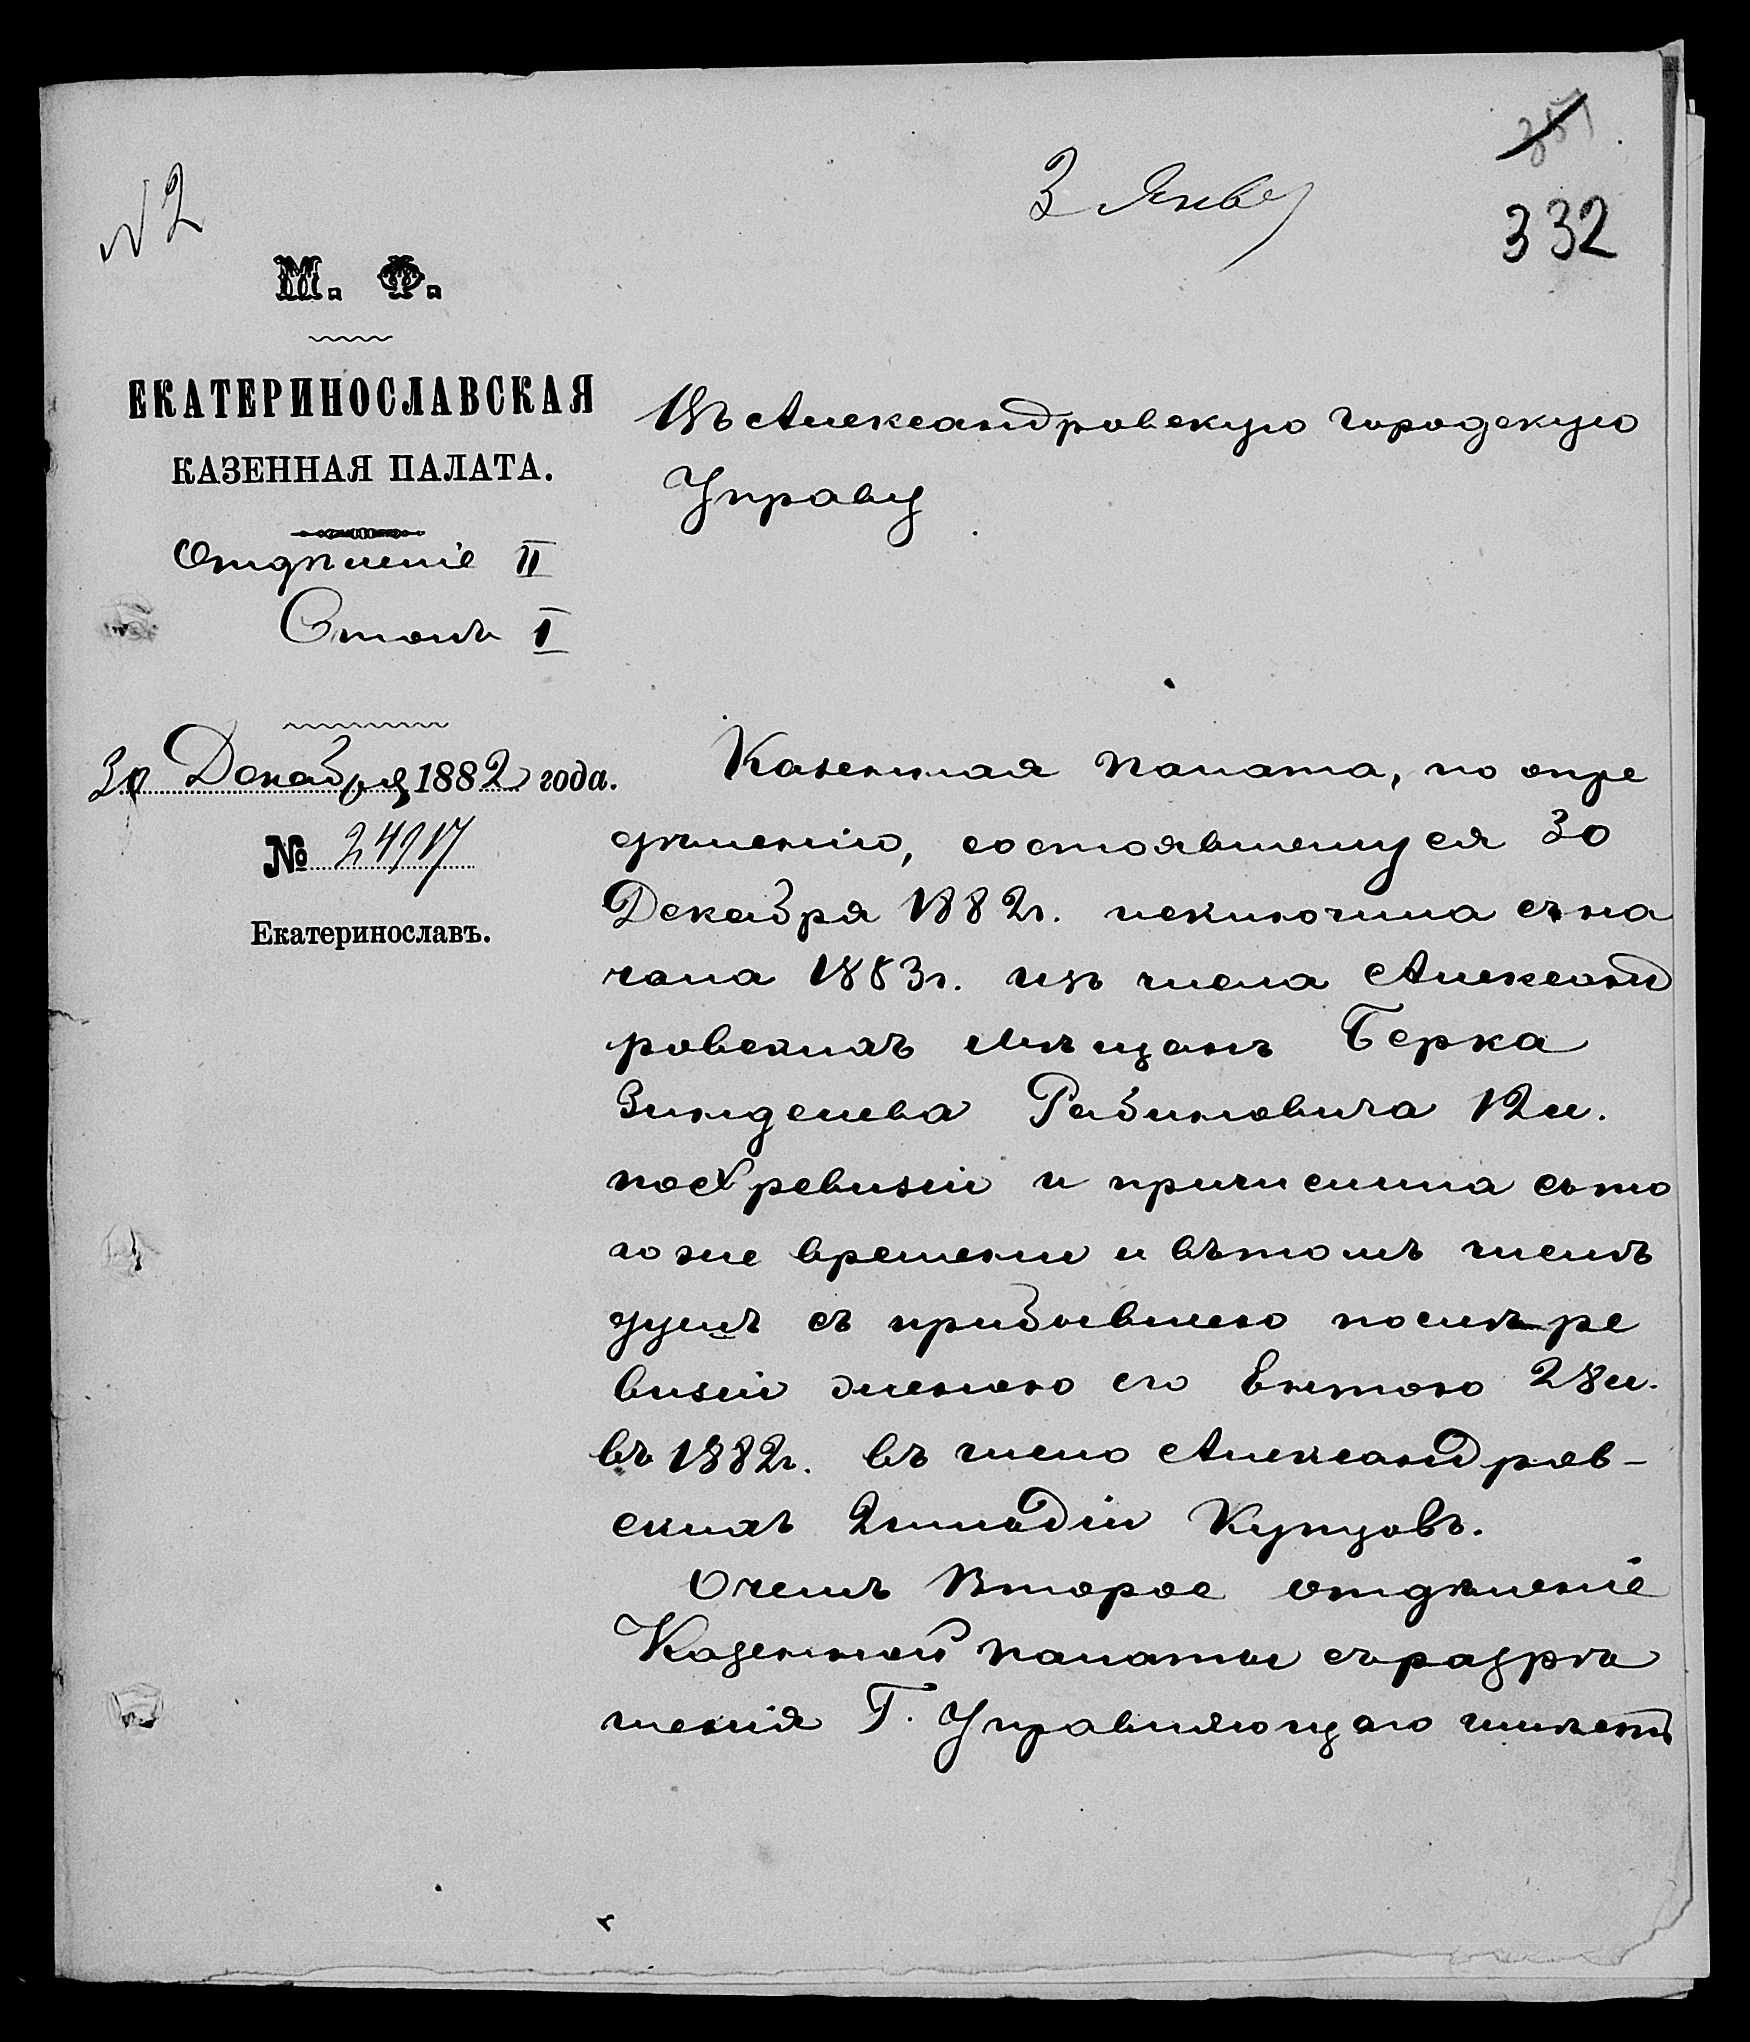 351
332
3 Янв
N 2
М. Ф.
ЕКАТЕРИНОСЛАВСКАЯ
КАЗЕННАЯ ПАЛАТА.
Отдѣленіе II
Столъ I
30 Декабря 1882 года.
№ 24917
Екатеринославъ.
Въ Александровскую городскую
Управу
Казенная палата, по опре
дѣленію, состоявшемуся 30
Декабря 1882г. исключила съ на
чала 1883г. изъ числа Александ
ровскихъ мѣщанъ Берка
Зинделева Рабиновича 12 л.
по X ревизіи и причислила съ то
го же времени и въ томъ числѣ
душъ съ прибывшею послѣ ре
визіи женою его 28 л.
въ 1882г. въ число Александров-
скихъ 2 гильдіи Купцовъ.
О чемъ Второе отдѣленіе
Казенной палаты съ разрѣ
шенія Г. Управляющаго имѣетъ